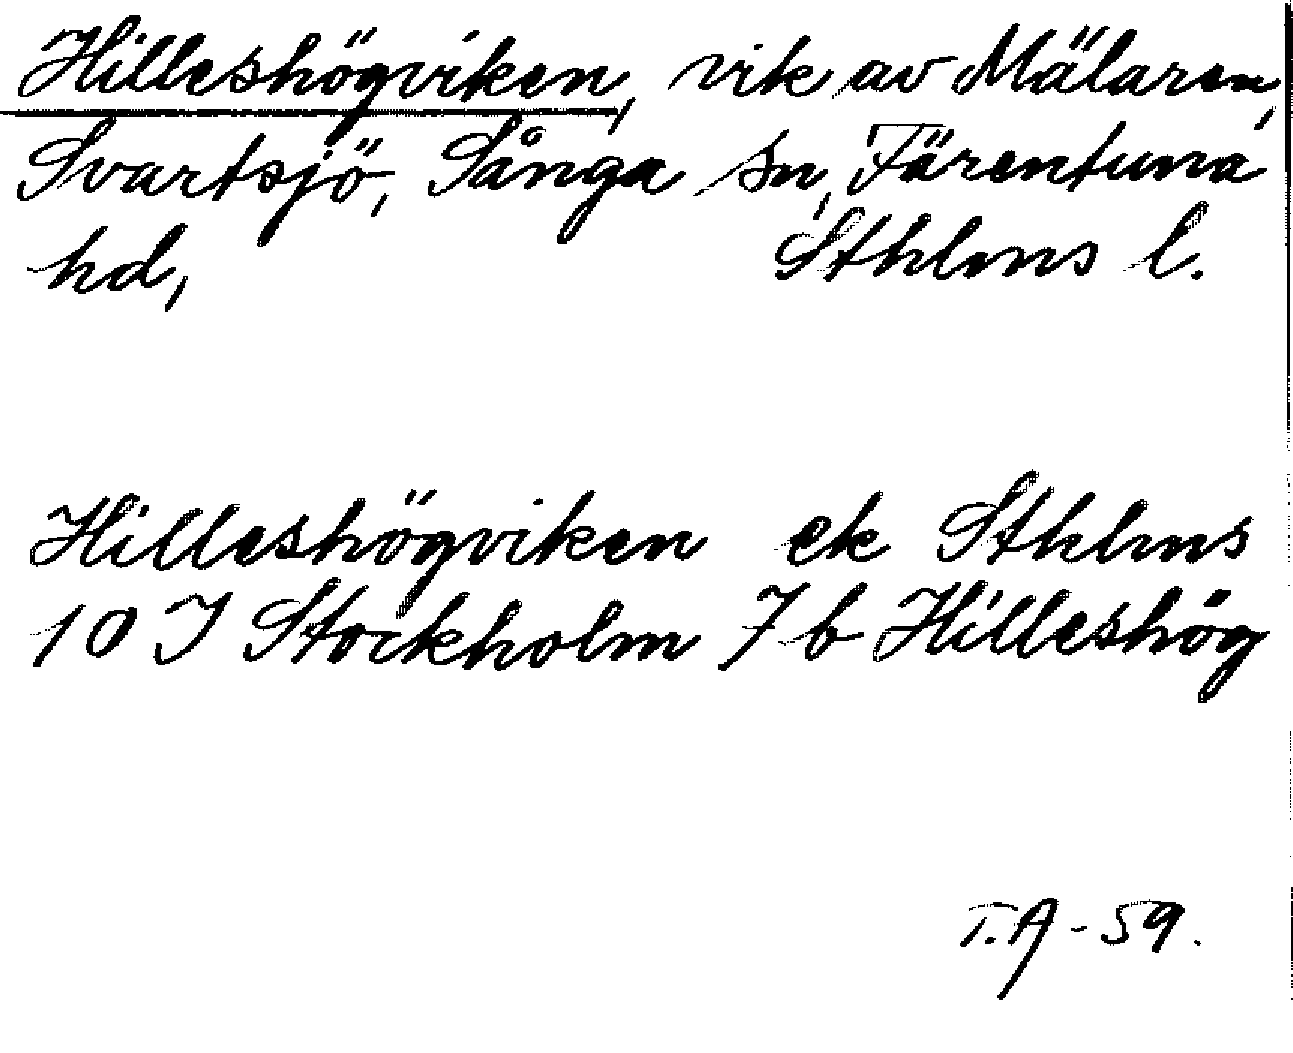 Hilleshögviken, vik av Mälaren,
Svartsjö, Sånga sn, Färentuna
hd, Sthlms l.
Hilleshögviken ek Sthlms
10 I Stockholm 7 b Hilleshög
T.A - 59.